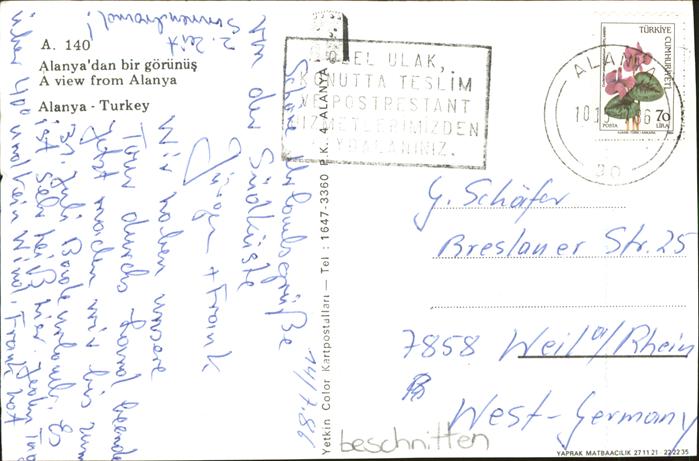 A. 140
Alanya'dan bir görünüş
A view from Alanya
Alanya - Turkey
Schöne Urlaubsgrüße
von der Südküste
Jürgen + Frank
14/7.86
Wir haben unsere
Tour durchs Land beendet
Jetzt machen wir bis zum
31. Juli Badeurlaub. Es
ist sehr heiß hier. Jeden Tag
über 40° und kein Wind. Frank hat
z. Zeit
Sonnenbrand!
ÖZEL ULAK,
KONUTTA TESLİM
VE POSTRESTANT
HİZMETLERİMİZDEN
FAYDALANINIZ.
Yetkin Color Kartpostalları — Tel : 1647-3360 P.K. 4 - ALANYA
TÜRKİYE
CUMHURİYETİ
70
LİRA
POSTA
ALANYA
G. Schäfer
Breslauer Str. 25
7858 Weil a/Rhein
West-Germany
beschnitten
YAPRAK MATBAACILIK 27 11 21 - 22 22 35